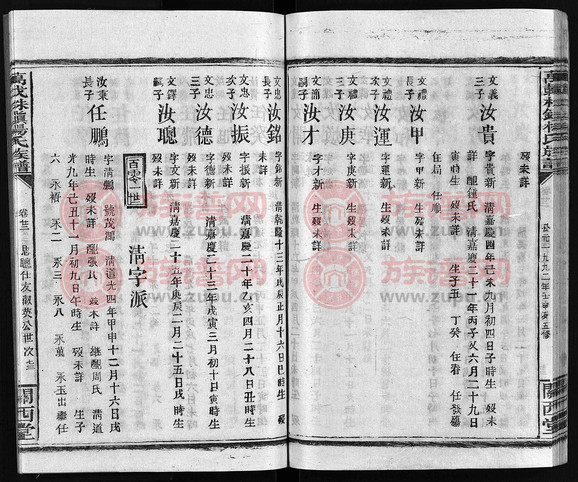 殁未詳
文義三子 汝貴 字貴新 清嘉慶四年己未九月初四日子時生 殁未詳 配鍾氏 清嘉慶二十一年丙子六月二十九日寅時生 殁未詳 生子五 丁癸 任春 任發 任局 任順
文禮長子 汝甲 字甲新 生殁未詳
二子 汝運 字運新 生殁未詳
三子 汝庚 字庚新 生殁未詳
文簡子 汝才 字才新 生殁未詳
文忠長子 汝銘 字錦新 清乾隆十三年戊辰正月十六日巳時生 殁未詳
文忠次子 汝振 字振新 清嘉慶二十年乙亥四月二十八日丑時生 殁未詳
文忠三子 汝德 字德新 清嘉慶二十三年戊寅三月初十日寅時生 殁未詳
文鐸子 汝聰 字文新 清嘉慶二十五年庚辰二月二十五日戌時生 殁未詳
百零二世 清字派
汝秉長子 任鵬 字清鵬 號茂鴻 清道光四年甲申十二月十六日戌時生 殁未詳 配張氏 殁未詳 繼配周氏 清道光九年己丑十一月初九日午時生 殁未詳 生子六 永樁 永二 永三 永八 永萬 永玉出繼任
萬載株鐔楊氏族譜
卷十三
忠聰仕友 淑英公世次
關西堂
公元一九九二年壬申五修
關西堂
族谱网
www.zupu.cn